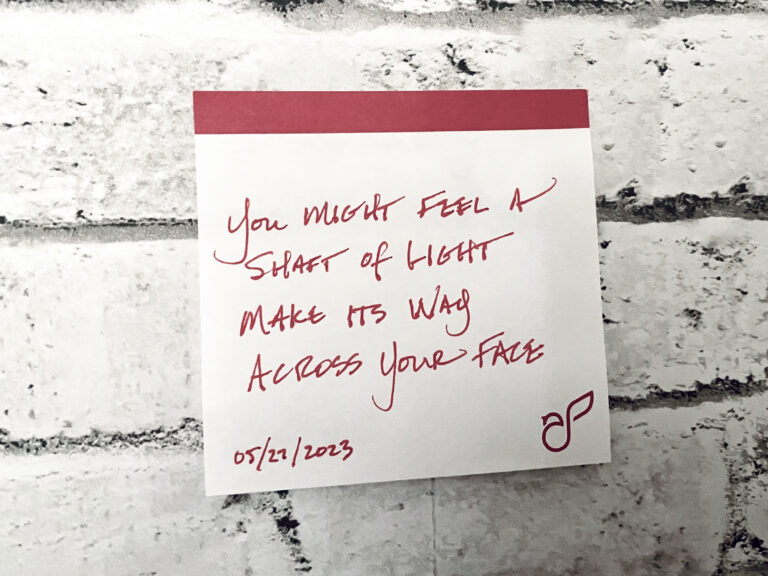 You might feel a
shaft of light
make its way
across your face
05/22/2023